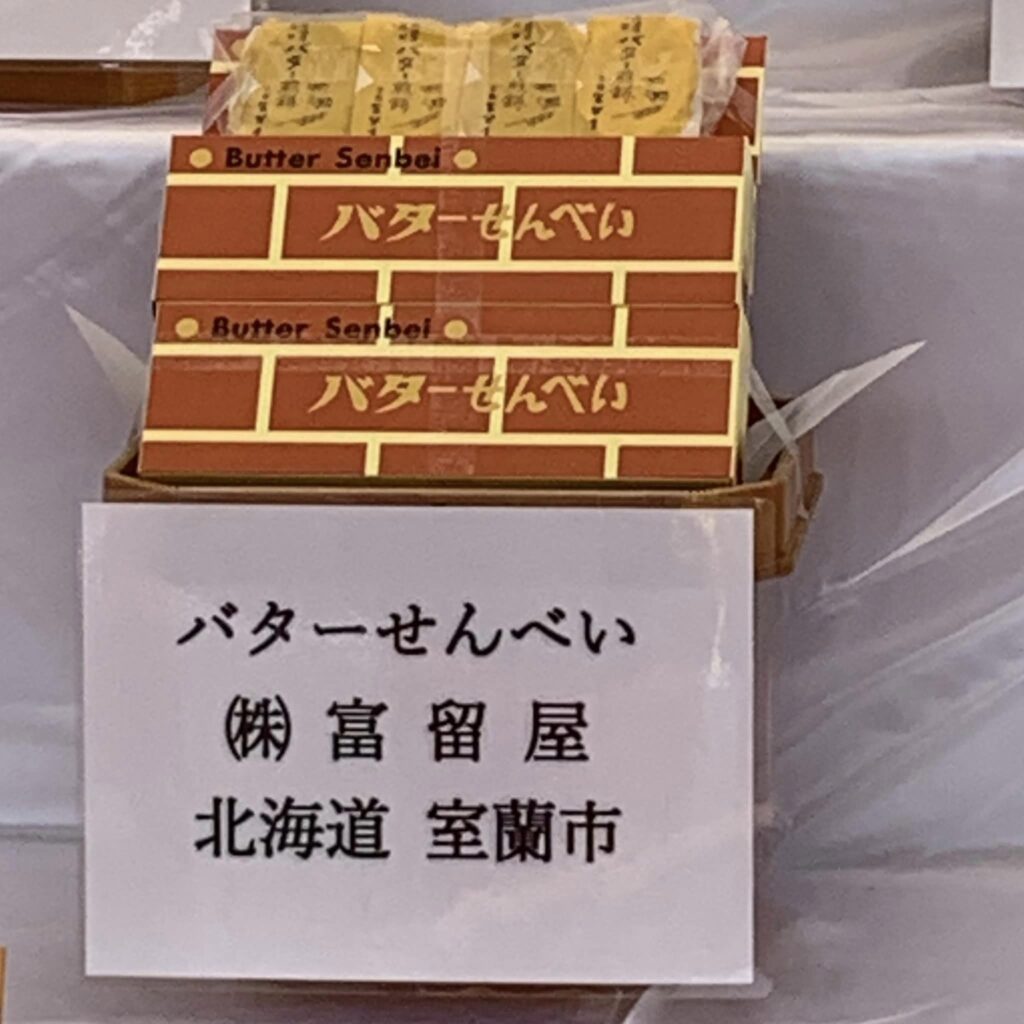 バター煎餅
バター煎餅
バター煎餅
バター煎餅
Butter Senbei
バターせんべい
Butter Senbei
バターせんべい
バターせんべい
㈱ 富 留 屋
北海道 室蘭市